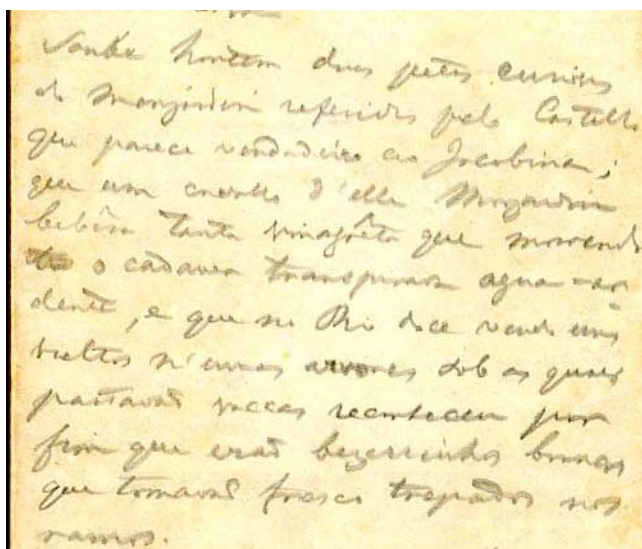 Soube hontem duas petas curiosas
do Monjardim referidas pelo Castello
que parece verdadeiro ao Jacobina;
que um cavallo d'elle Monjardim
bebêra tanta vinagrêta que morrendo
o cadaver transpirava agua-ar-
dente, e que no Rio doce vendo uns
vultos n'umas arvores sob as quaes
pastavaõ vaccas reconheceu por
fim que eraõ bezerrinhos brancos
que tomavaõ fresco trepados nos
ramos.